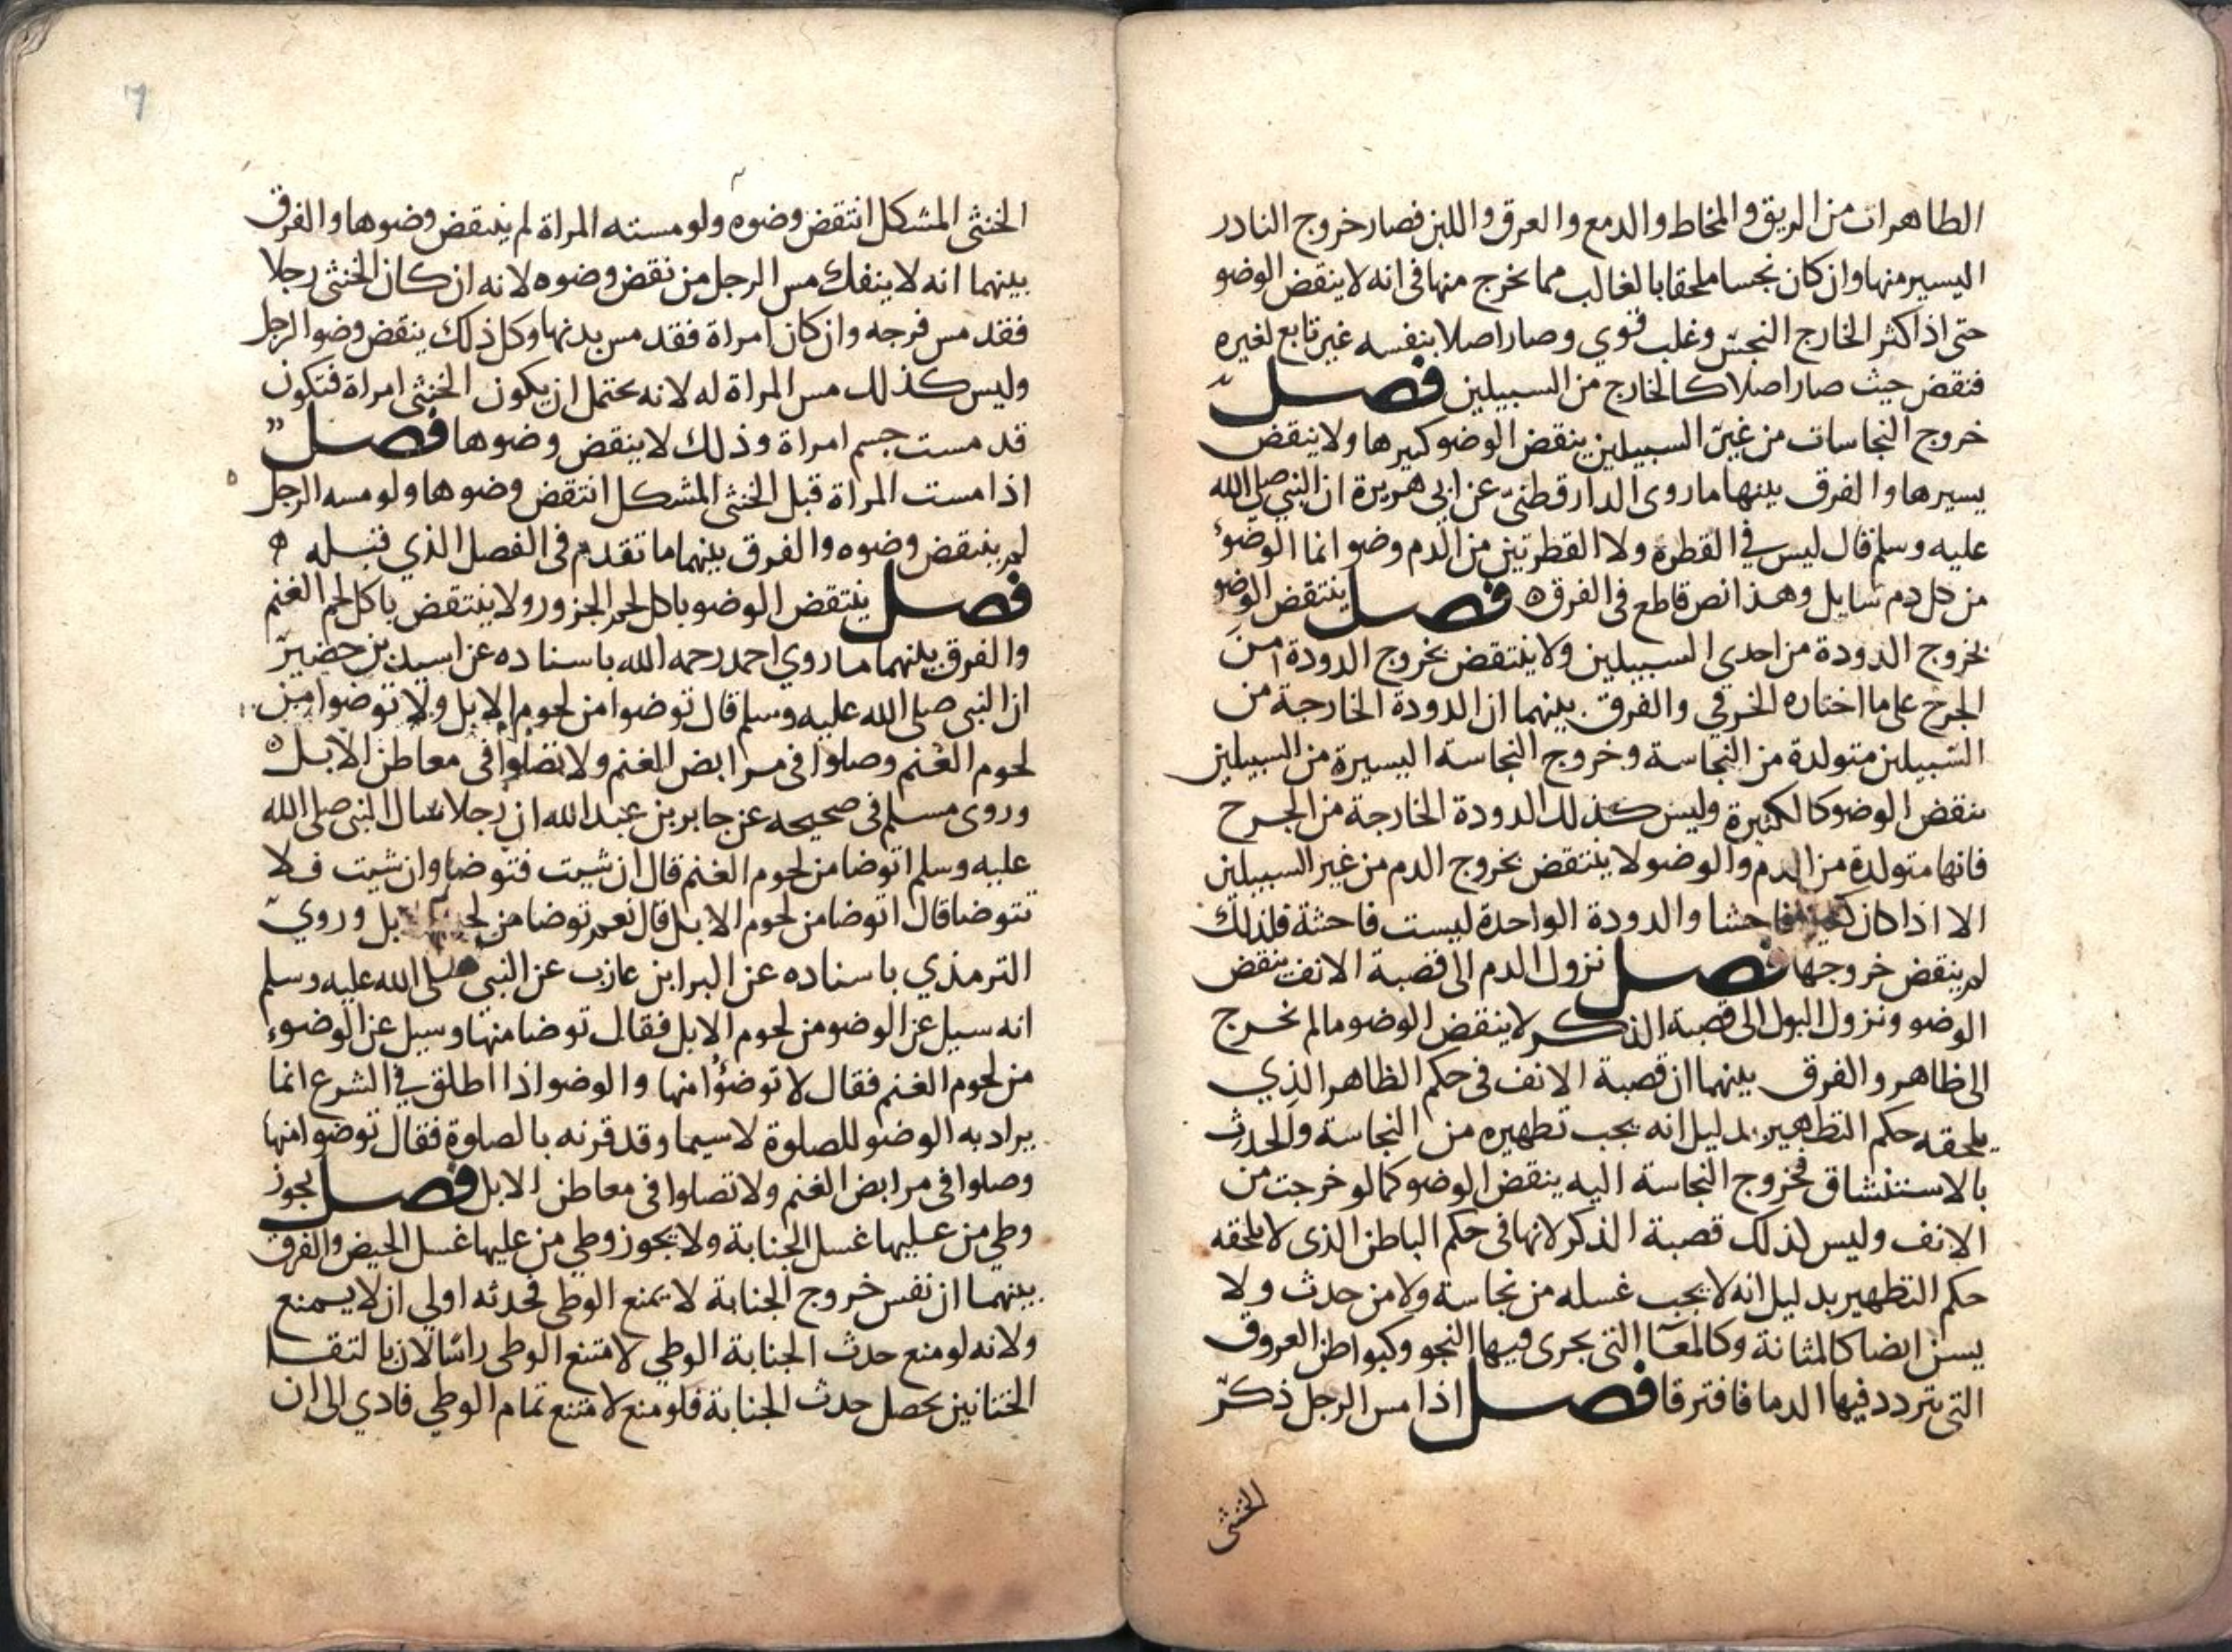 الطاهرات من الريق والمخاط والدمع والعرق واللبن فصار خروج النادر
اليسير منها وان كان نجسا ملحقا بالغالب مما يخرج منها في انه لا ينقض الوضو
حتى اذا كثر الخارج النجس وغلب قوي وصار اصلا بنفسه غير تابع لغيره
فنقض حيث صار اصلا كالخارج من السبيلين فصل
خروج النجاسات من غير السبيلين ينقض الوضو كثيرها ولا ينقض
يسيرها والفرق بينهما ما روى الدارقطني عن ابي هريرة ان النبي صلى الله
عليه وسلم قال ليس في القطرة ولا القطرتين من الدم وضو انما الوضوء
من كل دم سايل وهذا نص قاطع في الفرق ه فصل ينتقض الوضو
بخروج الدودة من احدي السبيلين ولا ينتقض بخروج الدودة من
الجرح على ما اختاره الخرقي والفرق بينهما ان الدودة الخارجة من
السبيلين متولدة من النجاسة وخروج النجاسة اليسيرة من السبيلين
ينقض الوضو كالكثيرة وليس كذلك الدودة الخارجة من الجرح
فانها متولدة من الدم والوضو لا ينتقض بخروج الدم من غير السبيلين
الا اذا كان فاحشا والدودة الواحدة ليست فاحشة فلذلك
لم ينقض خروجها فصل نزول الدم الى قصبة الانف ينقض
الوضو ونزول البول الى قصبة الذكر لا ينقض الوضو ما لم يخرج
الى ظاهر والفرق بينهما ان قصبة الانف في حكم الظاهر الذي
يلحقه حكم التطهير بدليل انه يجب تطهيره من النجاسة والحدث
بالاستنشاق فخروج النجاسة اليه ينقض الوضو كما لو خرجت من
الانف وليس كذلك قصبة الذكر لانها في حكم الباطن الذي لا يلحقه
حكم التطهير بدليل انه لا يجب غسله من نجاسة ولا من حدث ولا
يسن ايضا كالمثانة وكالمعآ التي يجرى فيها النجو وكبواطن العروق
التي يتردد فيها الدما فافترقا فصل اذا مس الرجل ذكر
الخنثى
الخنثى المشكل انتقض وضوه ولو مسته المراة لم ينتقض وضوها والفرق
بينهما انه لا ينفك مس الرجل من نقض وضوه لانه ان كان الخنثى رجلا
فقد مس فرجه وان كان امراة فقد مس بدنها وكل ذلك ينقض وضو الرجل
وليس كذلك مس المراة له لانه يحتمل ان يكون الخنثى امراة فتكون
قد مست جسم امراة وذلك لا ينقض وضوها فصل
اذا مست المراة قبل الخنثى المشكل انتقض وضوها ولو مسه الرجل
لم ينتقض وضوه والفرق بينهما ما تقدم في الفصل الذي قبله ه
فصل ينتقض الوضو باكل لحم الجزور ولا ينتقض باكل لحم الغنم
والفرق بينهما ما روي احمد رحمه الله باسناده عن اسيد بن حضير
ان النبي صلى الله عليه وسلم قال توضوا من لحوم الابل ولا توضوا من
لحوم الغنم وصلوا في مرابض الغنم ولا تصلوا في معاطن الابل ه
وروى مسلم في صحيحه عن جابر بن عبد الله ان رجلا سال النبي صلى الله
عليه وسلم اتوضا من لحوم الغنم قال ان شيت فتوضا وان شيت فلا
تتوضا قال اتوضا من لحوم الابل قال نعم توضا من بل وروي
الترمذي باسناده عن البرا بن عازب عن النبي صلى الله عليه وسلم
انه سيل عن الوضو من لحوم الابل فقال توضا منها وسيل عن الوضوء
من لحوم الغنم فقال لا توضؤا منها والوضو اذا اطلق في الشرع انما
يراد به الوضو للصلوة لا سيما وقد قرنه بالصلوة فقال توضوا منها
وصلوا في مرابض الغنم ولا تصلوا في معاطن الابل فصل يجوز
وطي من عليها غسل الجنابة ولا يجوز وطي من عليها غسل الحيض والفرق
بينهما ان نفس خروج الجنابة لا يمنع الوطي فحدثه اولي ان لا يمنع
ولانه لو منع حدث الجنابة الوطي لامتنع الوطي راسا لان بالتقا
الختانين يحصل حدث الجنابة فلو منع لامتنع تمام الوطي فادي الى ان